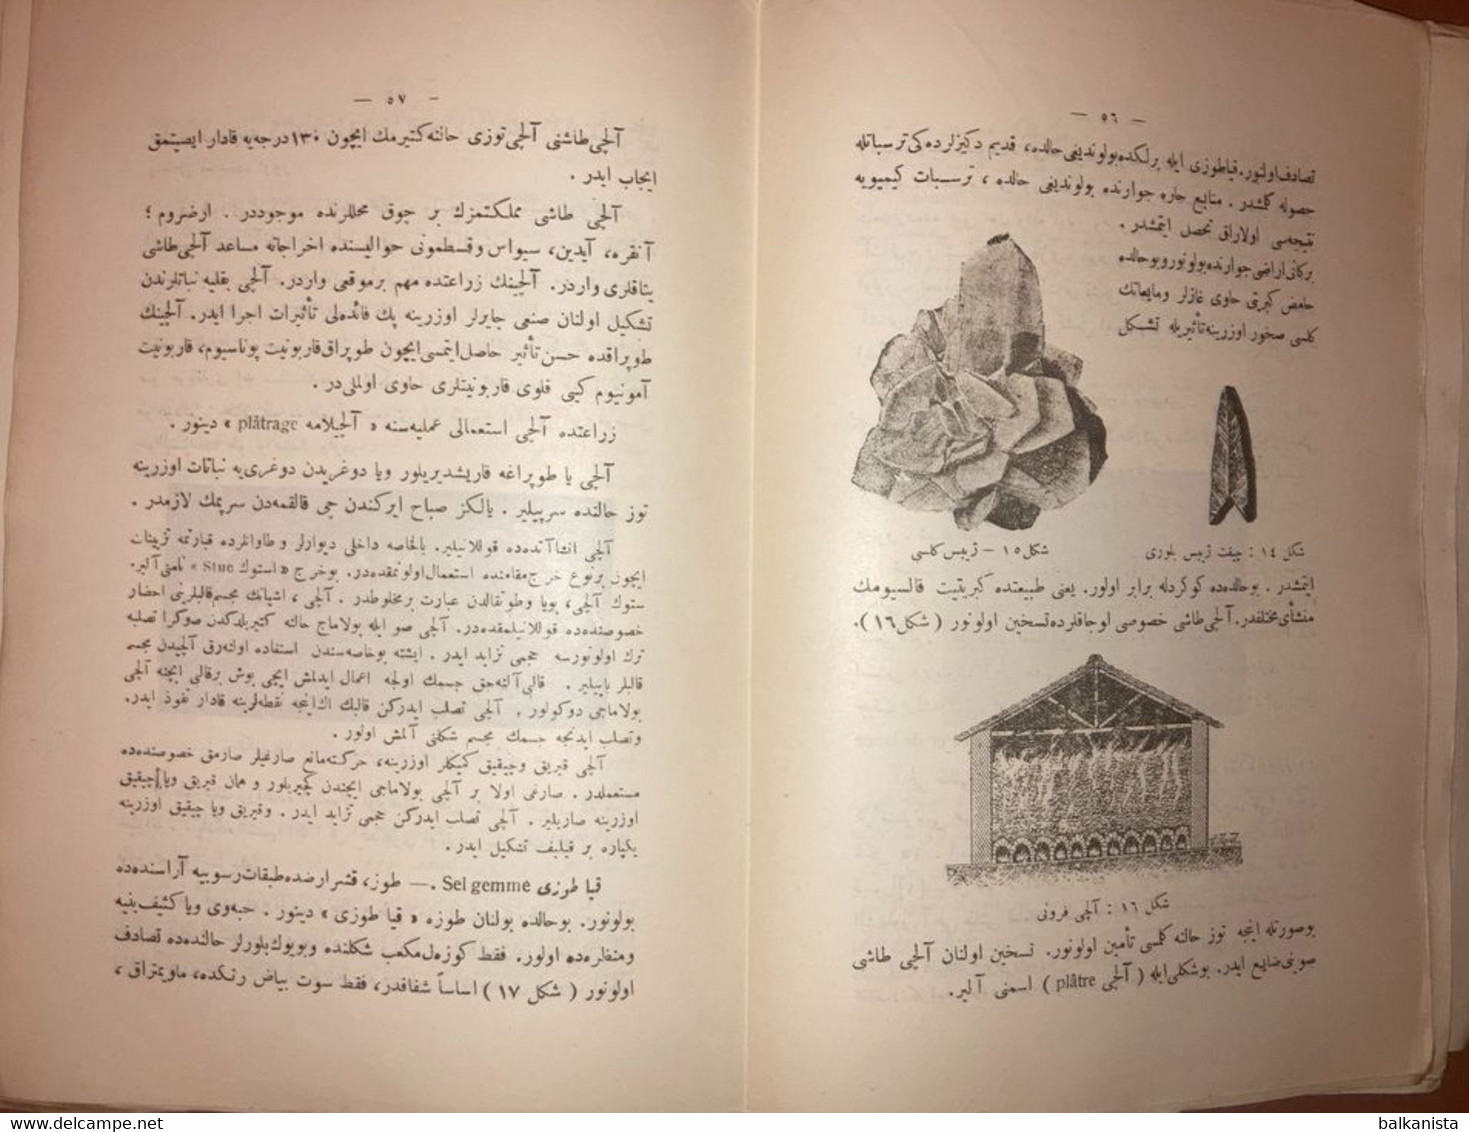 — ٥٦ —
تصادف اولنور. قیاطوزی ایله برلکده بولوندیغی حالده، قدیم دکیزلرده کی ترسباتله
حصوله کلشدر . منابع جاره جوارنده بولوندیغی حالده ، ترسبات کیمیویه
نتیجه‌سی اولاراق تحصل ایتمشدر .
برکانی اراضی جوارنده بولونور و بو حالده
حامض کبریتی حاوی غازلر ومایعاتك
کلسی صخور اوزرینه تأثیریله تشکل
شکل ١٤ : چیفت ژیپس بلوری
شکل ١٥ – ژیپس کلسی
ایتمشدر . بوحالده‌ده کوکردله برابر اولور. یعنی طبیعتده کبریتیت قالسیومك
منشأی مختلفدر. آلچی طاشی خصوصی اوجاقلرده تسخین اولونور ( شکل ١٦ ).
شکل ١٦ : آلچی فرونی
بوصورتله اینجه توز حالنه کلسی تأمین اولونور. تسخین اولنان آلچی طاشی
صوینی ضایع ایدر. بوشکلی ایله ( آلچی plâtre ) اسمنی آلیر.
— ٥٧ —
آلچی طاشنی آلچی توزی حالنه کتیرمك ایچون ١٣٠ درجه‌یه قادار ایصیتمق
ایجاب ایدر .
آلچی طاشی مملکتمزك بر چوق محللرنده موجوددر . ارضروم ؛
آنقره، آیدین، سیواس وقسطمونی حوالیسنده اخراجاته مساعد آلچی طاشی
یتاقلری واردر. آلچینك زراعتده مهم برموقعی واردر. آلچی بقلیه نباتلرندن
تشکیل اولنان صنعی چایرلر اوزرینه پك فائده‌لی تأثیرات اجرا ایدر. آلچینك
طوپراقده حسن تأثیر حاصل ایتمسی ایچون طوپراق قاربونیت پوتاسیوم، قاربونیت
آمونیوم کبی قلوی قاربونیتلری حاوی اولملی در .
زراعتده آلچی استعمالی عملیه‌سنه « آلچیلامه plâtrage » دینور .
آلچی یا طوپراغه قاریشدیریلور ویا دوغریدن دوغری‌یه نباتات اوزرینه
توز حالنده سرپیلیر . یالکز صباح ایرکندن چی قالقمه‌دن سرپمك لازمدر .
آلچی انشاآتده‌ده قوللانیلیر. بالخاصه داخلی دیوارلر و طاوانلرده قبارتمه تزیینات
ایچون برنوع خرج مقامنده استعمال اولونمقده‌در. بوخرج « استوك Stuc » نامنی آلیر.
ستوك آلچی، بویا وطوتقالدن عبارت برمخلوطدر . آلچی ، اشیانك مجسم قالبلرینی احضار
خصوصنده‌ده قوللانیلمقده‌در. آلچی صو ایله بولاماج حالنه کتیریلدکدن صوکرا تصلبه
ترك اولونورسه حجمی تزاید ایدر . ایشته بوخاصه‌سندن استفاده اوله‌رق آلچیدن مجسم
قالبلر یاپیلیر . قالبی آلنه‌جق جسمك اولجه اعمال ایدلمش ایچی بوش برقالبی ایچنه آلچی
بولاماجی دوکولور . آلچی تصلب ایدرکن قالبك اك اینجه نقطه‌لرینه قادار نفوذ ایدر.
وتصلب ایدنجه جسمك مجسم شکلنی آلمش اولور .
آلچی قیریق وچیقیق کمیکلر اوزرینه، حرکته مانع صارغیلر صارمق خصوصنده‌ده
مستعملدر . صارغی اولا بر آلچی بولاماجی ایچندن کچیریلور و همان قیریق ویا چیقیق
اوزرینه صاریلیر . آلچی تصلب ایدرکن حجمی تزاید ایدر . وقیریق ویا چیقیق اوزرینه
یکپاره بر قیلیف تشکیل ایدر .
قیا طوزی Sel gemme .— طوز، قشر ارضده طبقات رسوبیه آراسنده‌ده
بولونور. بوحالده بولنان طوزه « قیا طوزی » دینور . حبه‌وی ویا کثیف بنیه
ومنظره‌ده اولور. فقط کوزه‌ل مکعب شکلنده وبویوك بلورلر حالنده‌ده تصادف
اولونور ( شکل ١٧ ) اساساً شفافدر، فقط سوت بیاض رنکده، ماویمتراق ،
balkanista